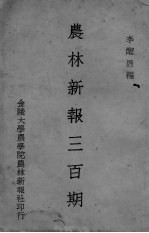 李醒愚編
農林新報三百期
金陵大學農學院農林新報社印行